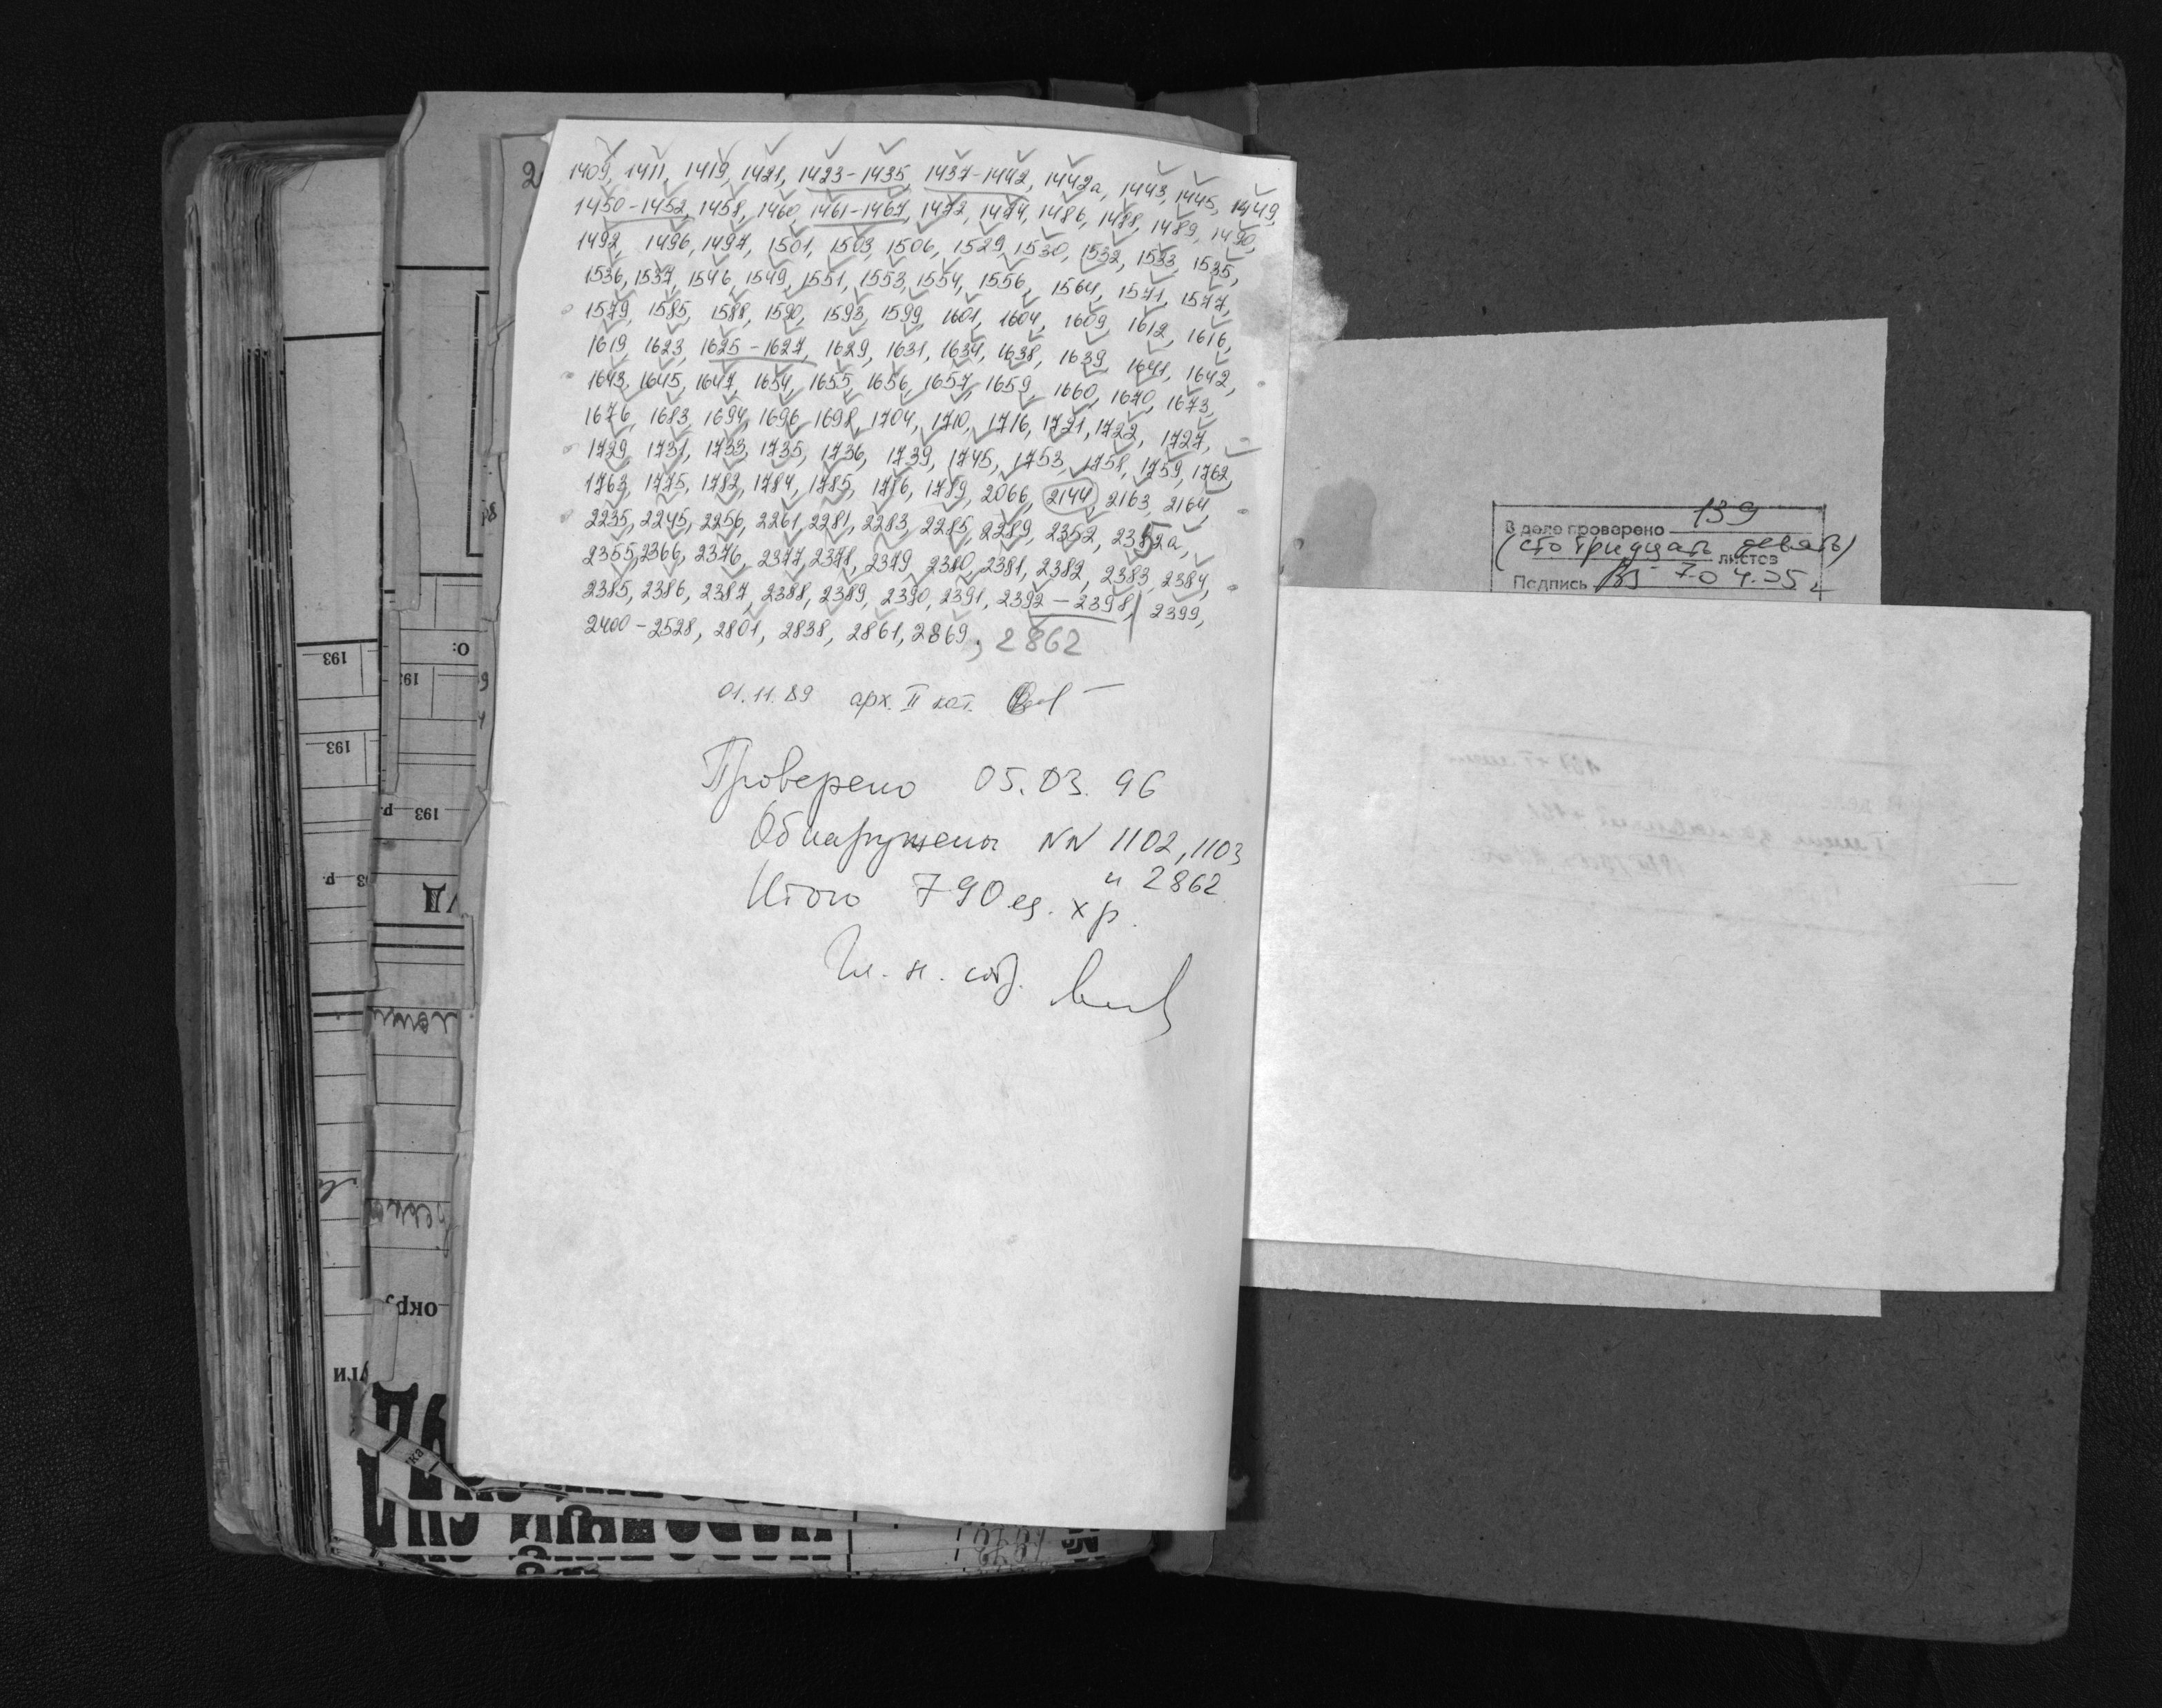 1409, 1411, 1419, 1421, 1423-1435, 1437-1442, 1442а, 1443, 1445, 1449,
1450-1452, 1458, 1460, 1461-1467, 1472, 1474, 1486, 1488, 1489, 1490,
1492, 1496, 1497, 1501, 1503, 1506, 1529, 1530, 1532, 1533, 1535,
1536, 1537, 1546, 1549, 1551, 1553, 1554, 1556, 1564, 1571, 1577,
1579, 1585, 1588, 1590, 1593, 1599, 1601, 1604, 1609, 1612, 1616,
1619, 1623, 1625-1627, 1629, 1631, 1634, 1638, 1639, 1641, 1642,
1643, 1645, 1647, 1654, 1655, 1656, 1657, 1659, 1660, 1670, 1673,
1676, 1683, 1694, 1696, 1698, 1704, 1710, 1716, 1721, 1722, 1727,
1729, 1731, 1733, 1735, 1736, 1739, 1745, 1753, 1758, 1759, 1762,
1763, 1775, 1782, 1784, 1785, 1789, 2066, 2144, 2163, 2164,
2235, 2245, 2256, 2261, 2281, 2283, 2285, 2289, 2352, 2352а,
2355, 2366, 2376, 2377, 2378, 2379, 2380, 2381, 2382, 2383, 2384,
2385, 2386, 2387, 2388, 2389, 2390, 2391, 2392-2398, 2399,
2400-2528, 2801, 2838, 2861, 2869; 2862
01.11.89 арх. II кат.
Проверено 05.03.96
Обнаружены NN 1102, 1103
и 2862
Итого 790 ед. хр.
Гл. н. собр.
В деле проверено 139
(сто тридцать девять)
листов
Подпись 7.04.05
193
193
193
О:
окру